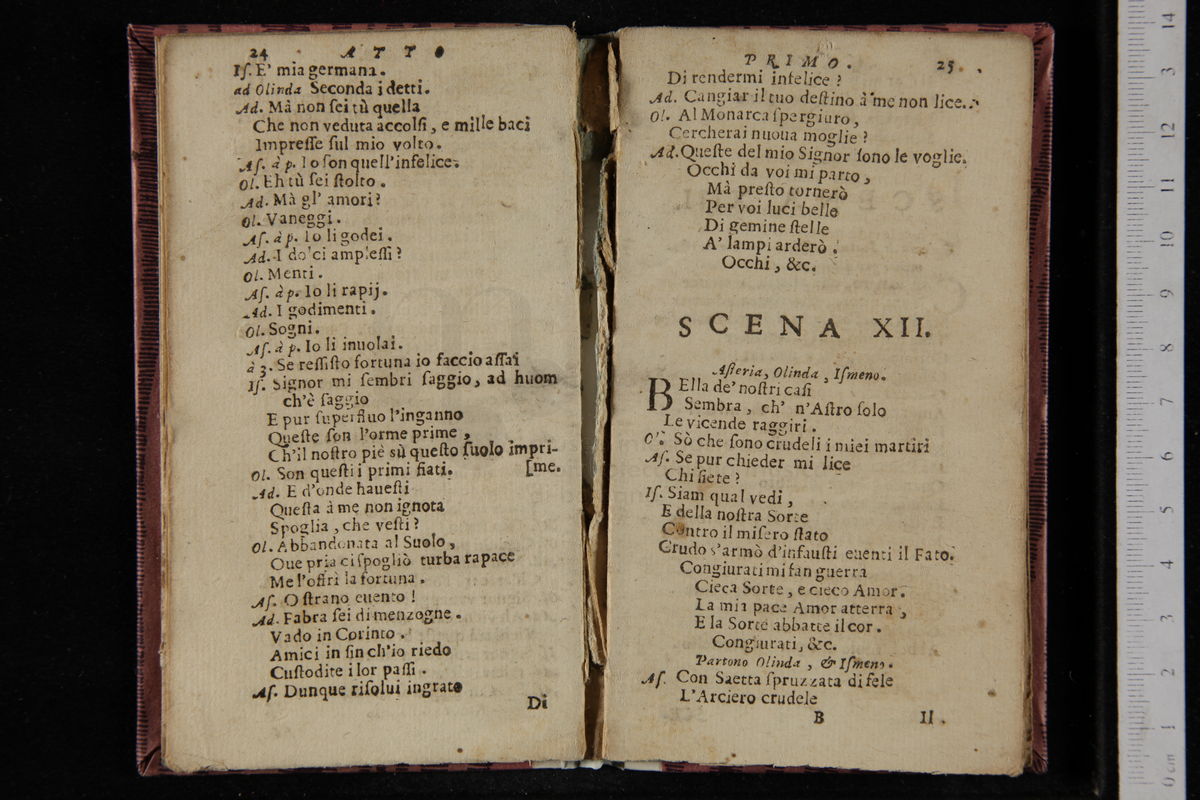 24 ATTO
Iſ. E' mia germana.
ad Olinda Seconda i detti.
Ad. Mà non ſei tù quella
Che non veduta accolſi, e mille baci
Impreſſe ſul mio volto.
Aſ. à p. Io ſon quell'infelice.
Ol. Eh tù ſei ſtolto.
Ad. Mà gl' amori?
Ol. Vaneggi.
Aſ. à p. Io li godei.
Ad. I do'ci ampleſſi?
Ol. Menti.
Aſ. à p. Io li rapij.
Ad. I godimenti.
Ol. Sogni.
Aſ. à p. Io li inuolai.
à 3. Se reſſiſto fortuna io faccio aſſai
Iſ. Signor mi ſembri ſaggio, ad huom
ch'è ſaggio
E pur ſuperfluo l'inganno
Queſte ſon l'orme prime,
Ch'il noſtro piè sù queſto ſuolo impri-
Ol. Son queſti i primi fiati. [me.
Ad. E d'onde haueſti
Queſta à me non ignota
Spoglia, che veſti?
Ol. Abbandonata al Suolo,
Oue pria ci ſpogliò turba rapace
Me l'offrì la fortuna.
Aſ. O ſtrano euento!
Ad. Fabra ſei di menzogne.
Vado in Corinto.
Amici in ſin ch'io riedo
Cuſtodite i lor paſſi.
Aſ. Dunque riſolui ingrato
Di
PRIMO. 25
Di rendermi infelice?
Ad. Cangiar il tuo deſtino à me non lice.
Ol. Al Monarca ſpergiuro,
Cercherai nuoua moglie?
Ad. Queſte del mio Signor ſono le voglie.
Occhi da voi mi parto,
Mà preſto tornerò
Per voi luci belle
Di gemine ſtelle
A' lampi arderò.
Occhi, &c.
SCENA XII.
Aſteria, Olinda, Iſmeno.
BElla de' noſtri caſi
Sembra, ch' n'Aſtro ſolo
Le vicende raggiri.
O'. Sò che ſono crudeli i miei martiri
Aſ. Se pur chieder mi lice
Chi ſiete?
Iſ. Siam qual vedi,
E della noſtra Sorte
Contro il miſero ſtato
Crudo s'armò d'infauſti euenti il Fato.
Congiurati mi fan guerra
Cieca Sorte, e cieco Amor.
La mia pace Amor atterra,
E la Sorte abbatte il cor.
Congiurati, &c.
Partono Olinda, & Iſmeno.
Aſ. Con Saetta ſpruzzata di fele
L'Arciero crudele
B II.
0 cm 1 2 3 4 5 6 7 8 9 10 11 12 3 14